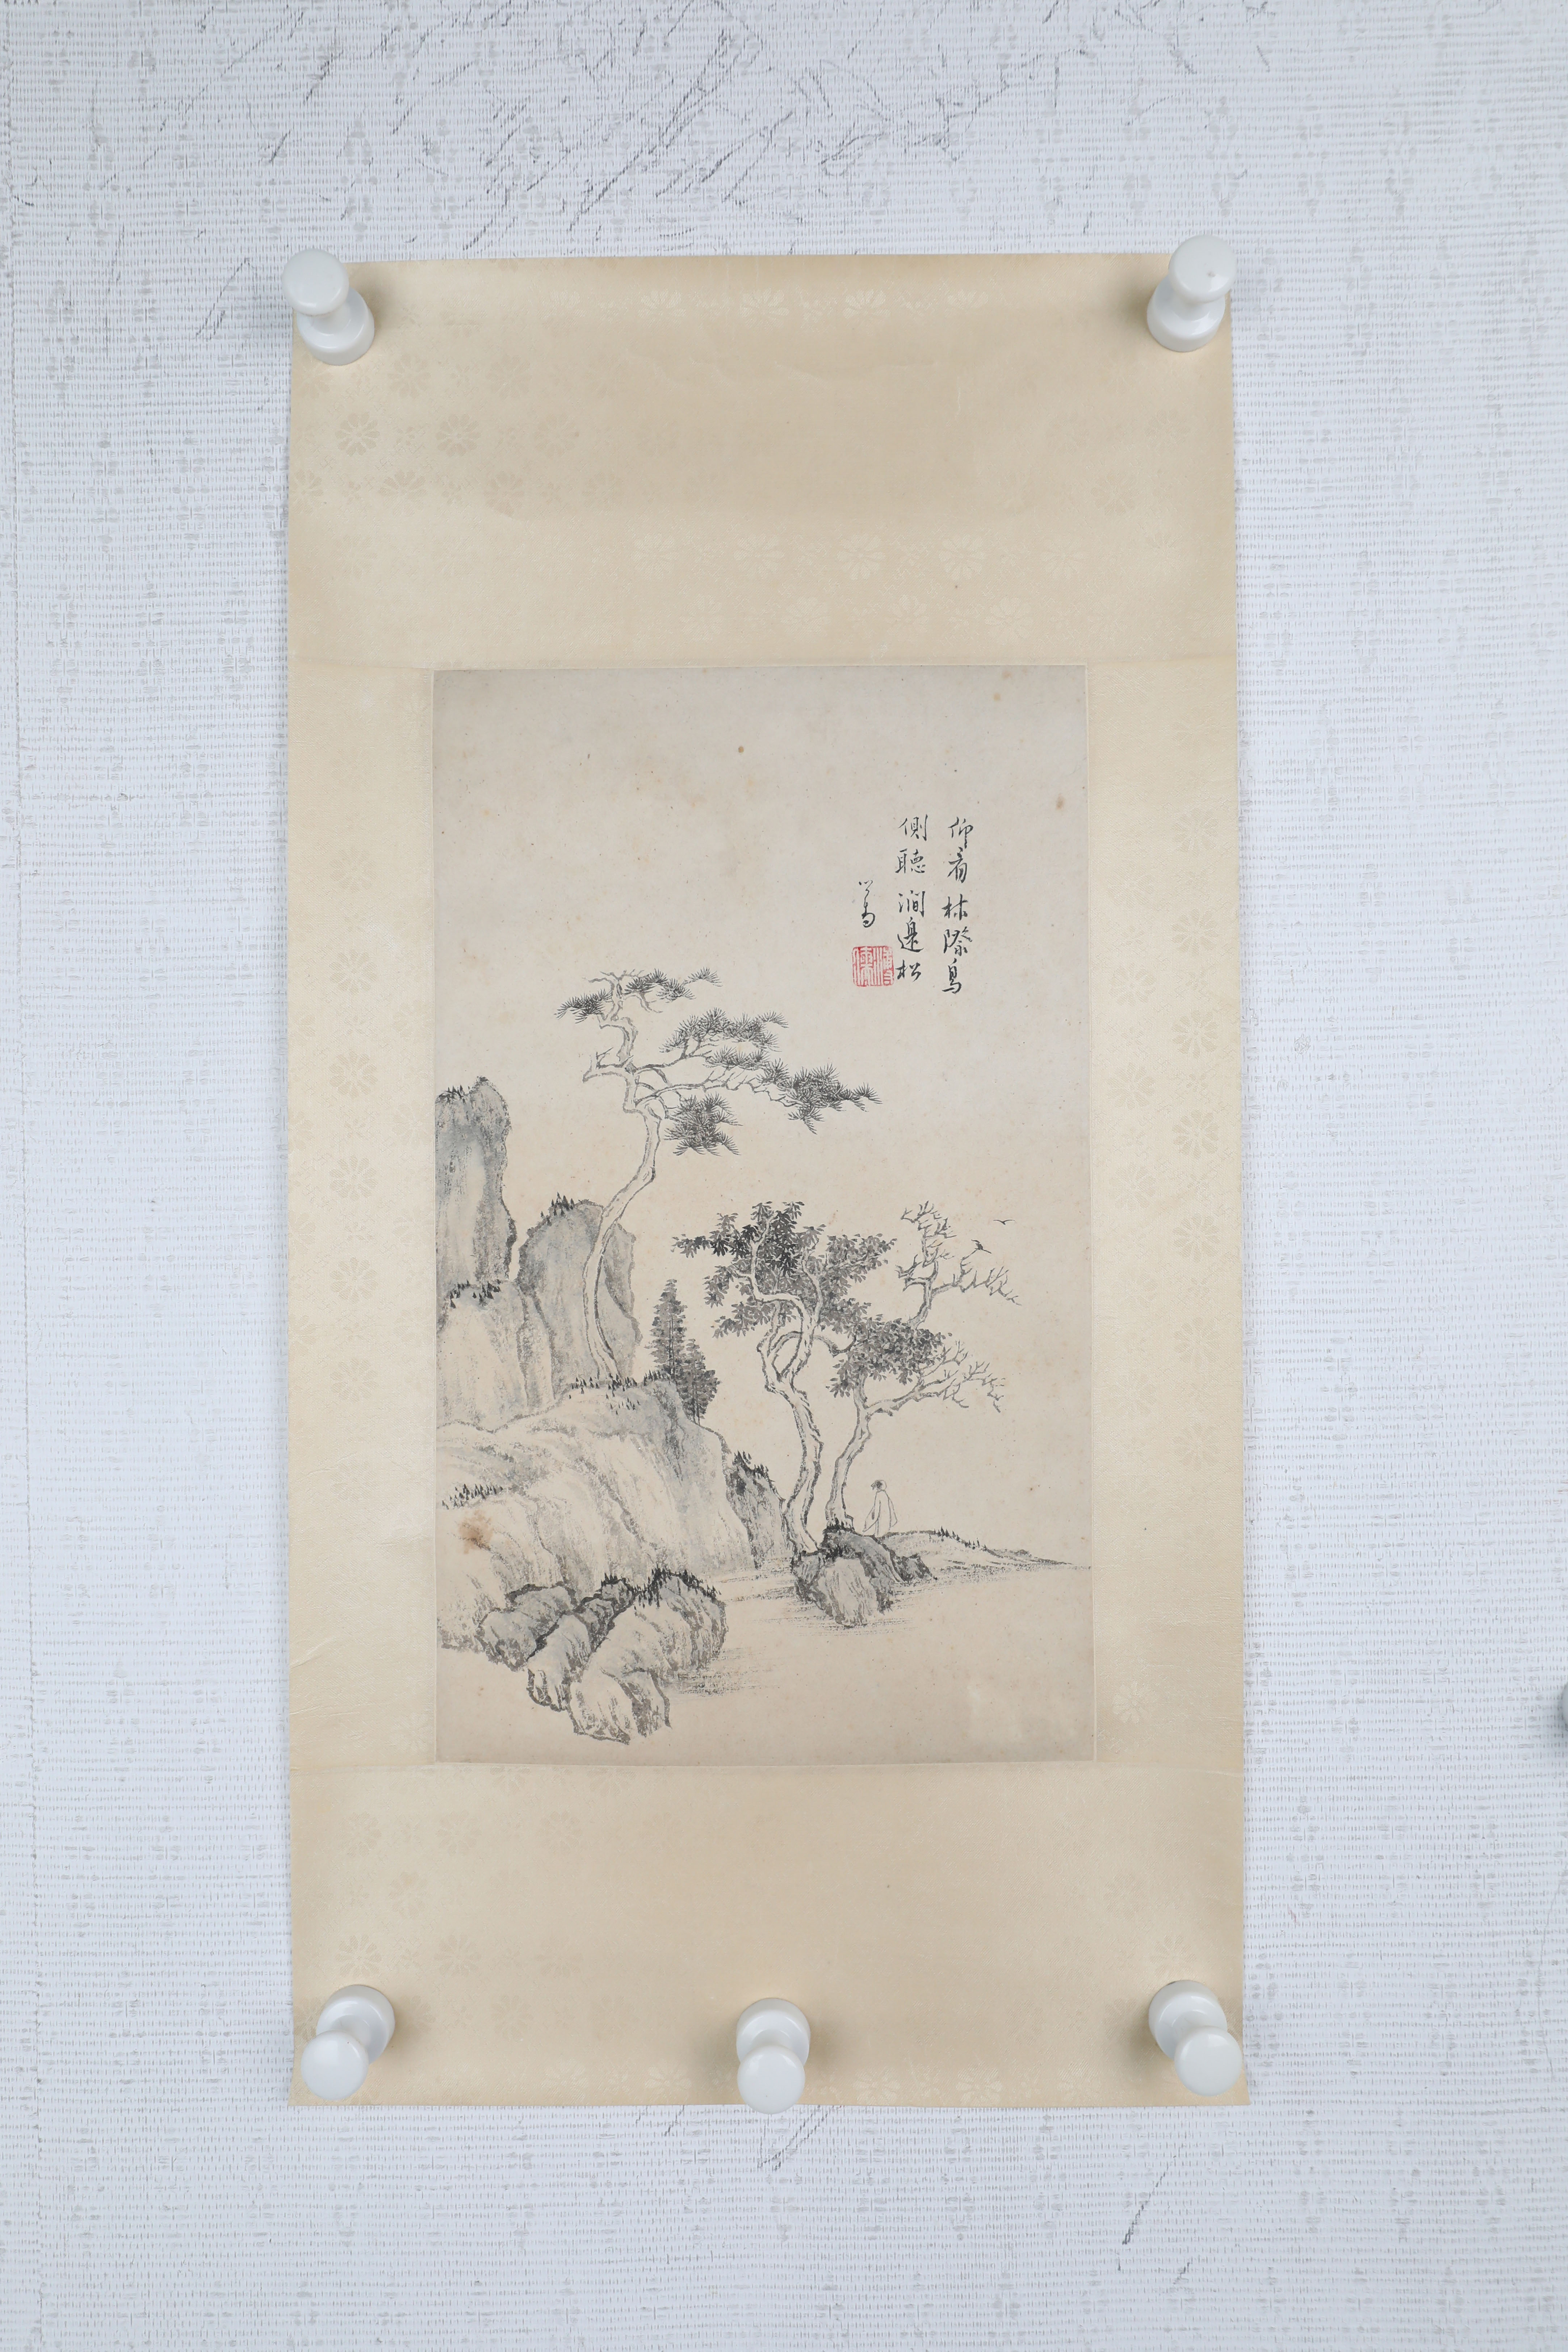 仰看林際鳥
側聽澗邊松
心畬